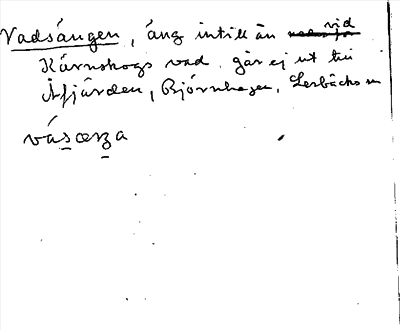 Vadsängen, äng intill ån vid
Kärnskogs vad, går ej ut till
Åfjärden, Björnhagen, Lerbäcks m